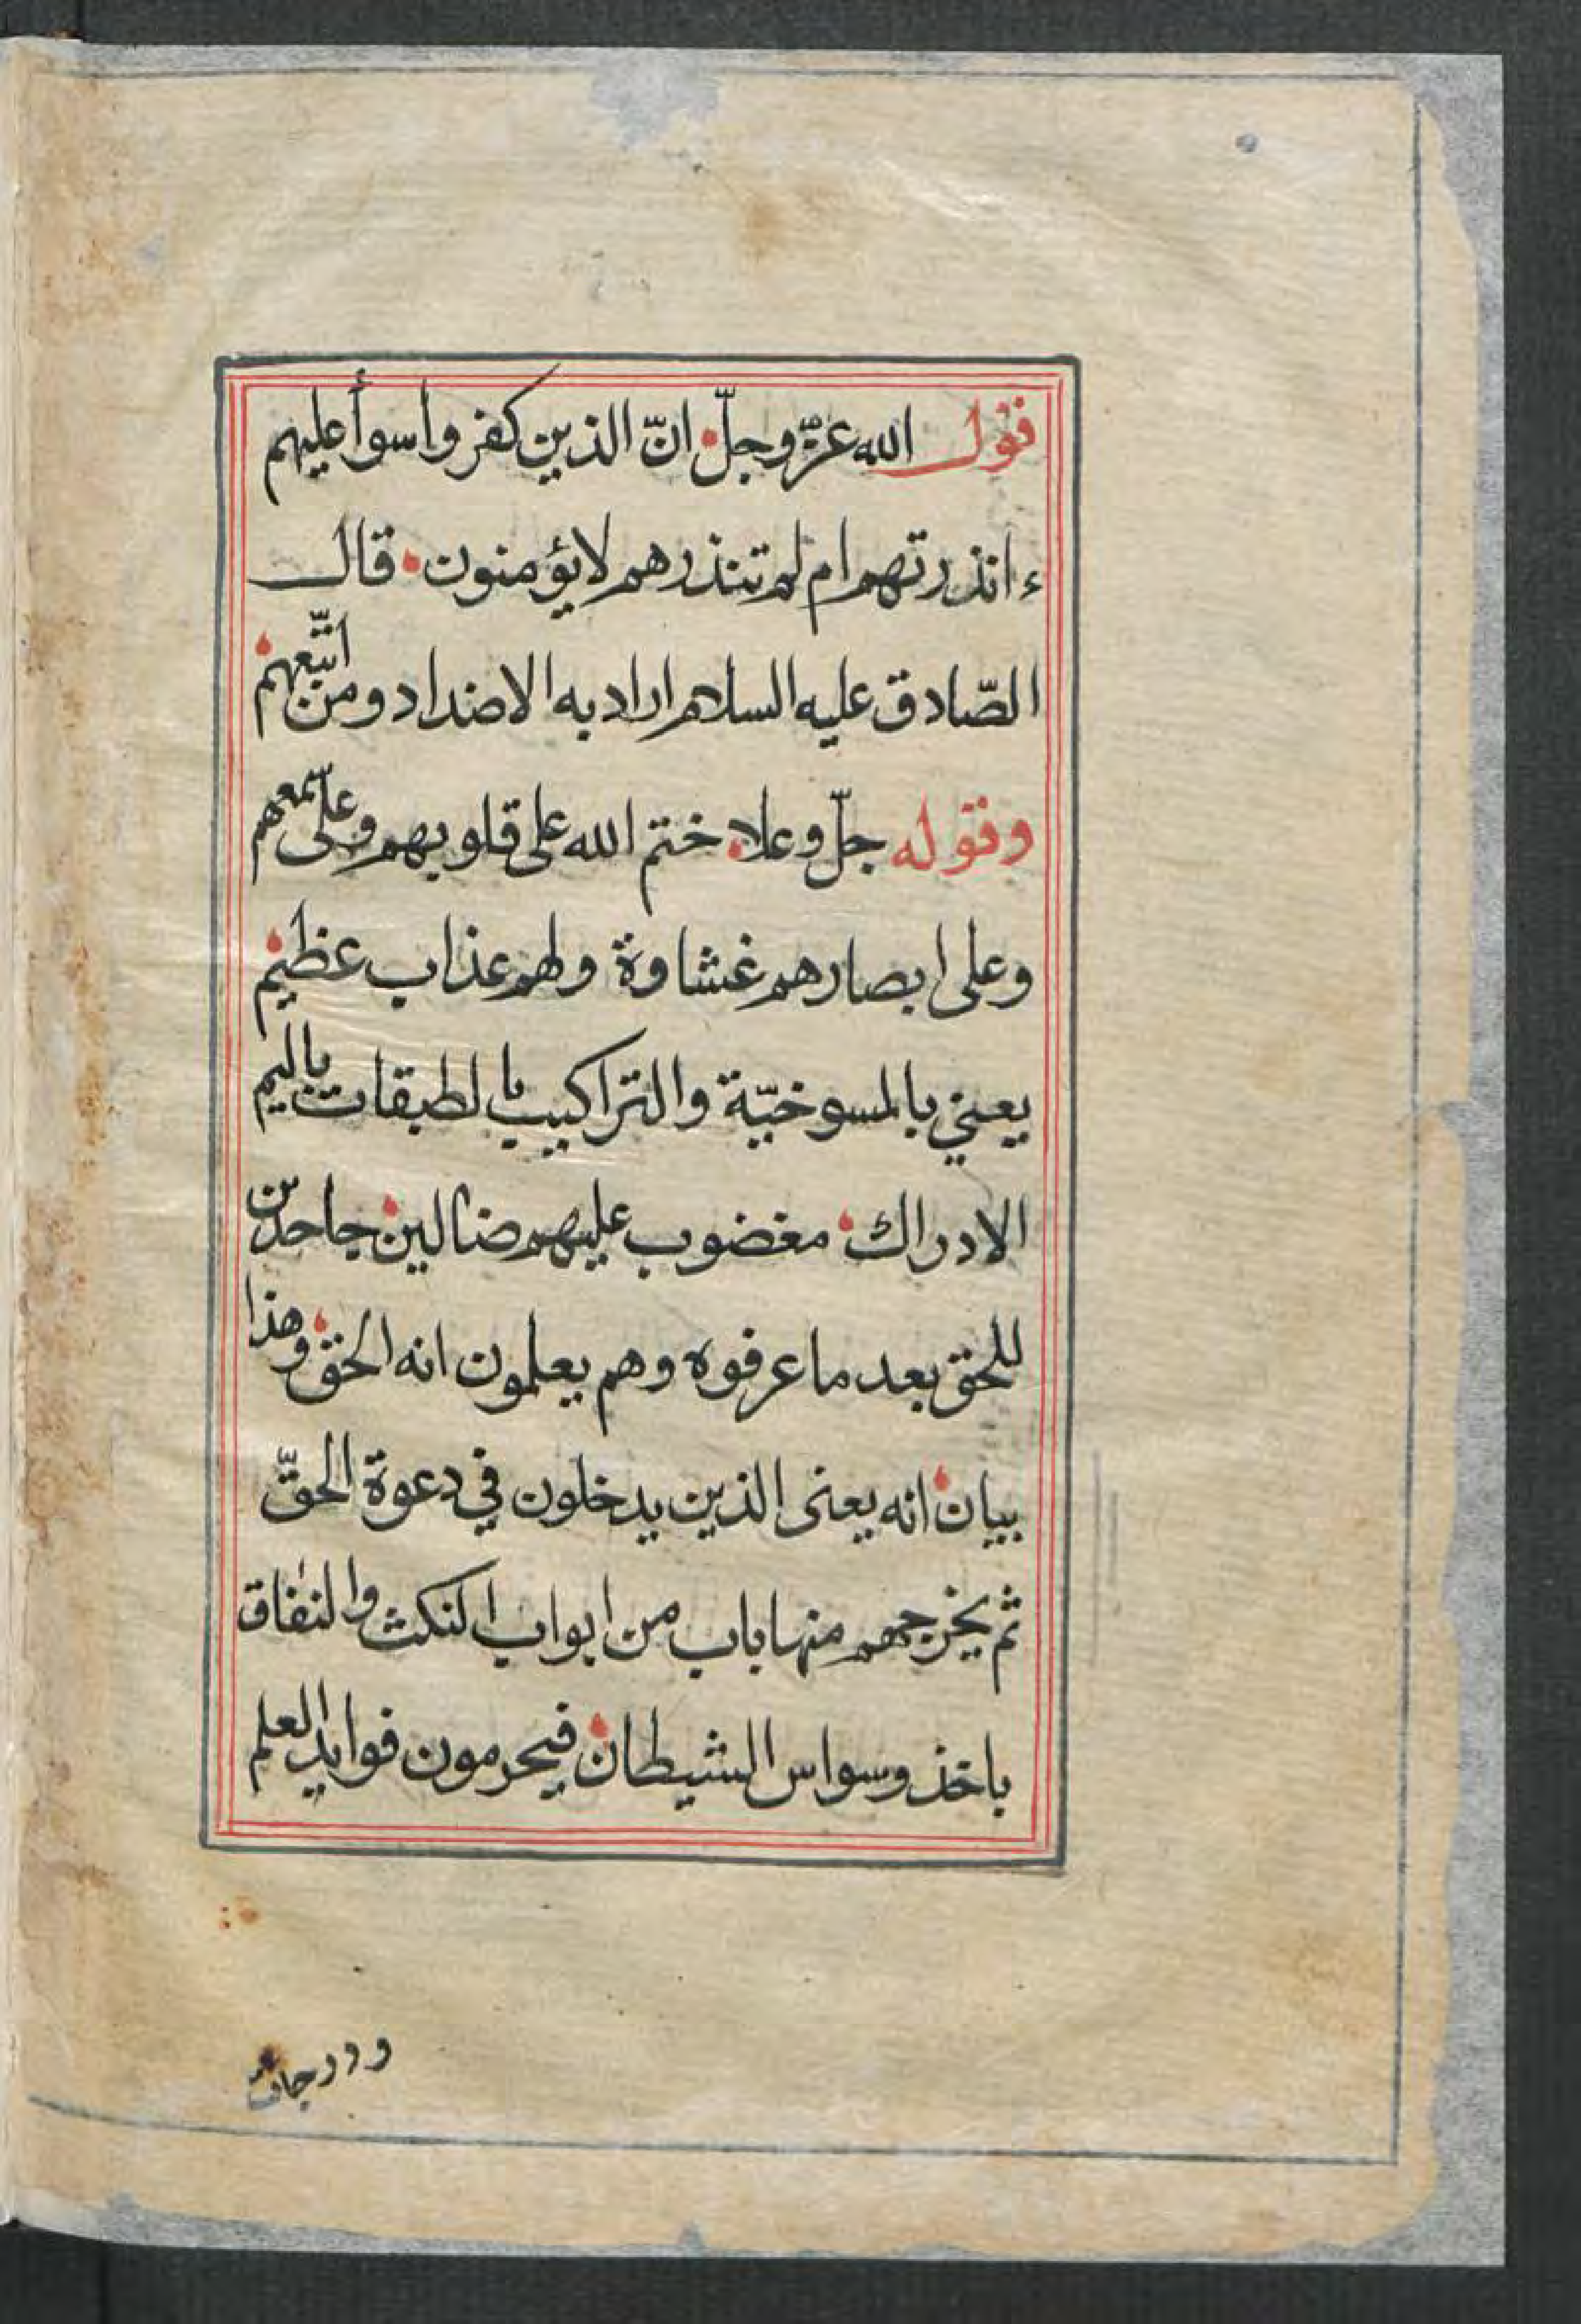 قول الله عزّ وجلّ انّ الذين كفروا سوأ عليهم
ءانذرتهم ام لم تنذرهم لا يؤمنون قال
الصّادق عليه السلام اراد به الاضداد ومن اتّبعهم
وقوله جلّ وعلا ختم الله على قلوبهم وعلى سمعهم
وعلى ابصارهم غشاوة ولهم عذاب عظيم
يعني بالمسوخيّة والتراكيب بالطبقات باليم
الادراك مغضوب عليهم ضالين جاحدين
للحق بعد ما عرفوه وهم يعلمون انه الحق وهذا
بيان انه يعنى الذين يدخلون في دعوة الحقّ
ثم يخرجهم منها باب من ابواب النكث والنفاق
باخذ وسواس الشيطان فيحرمون فوايد العلم